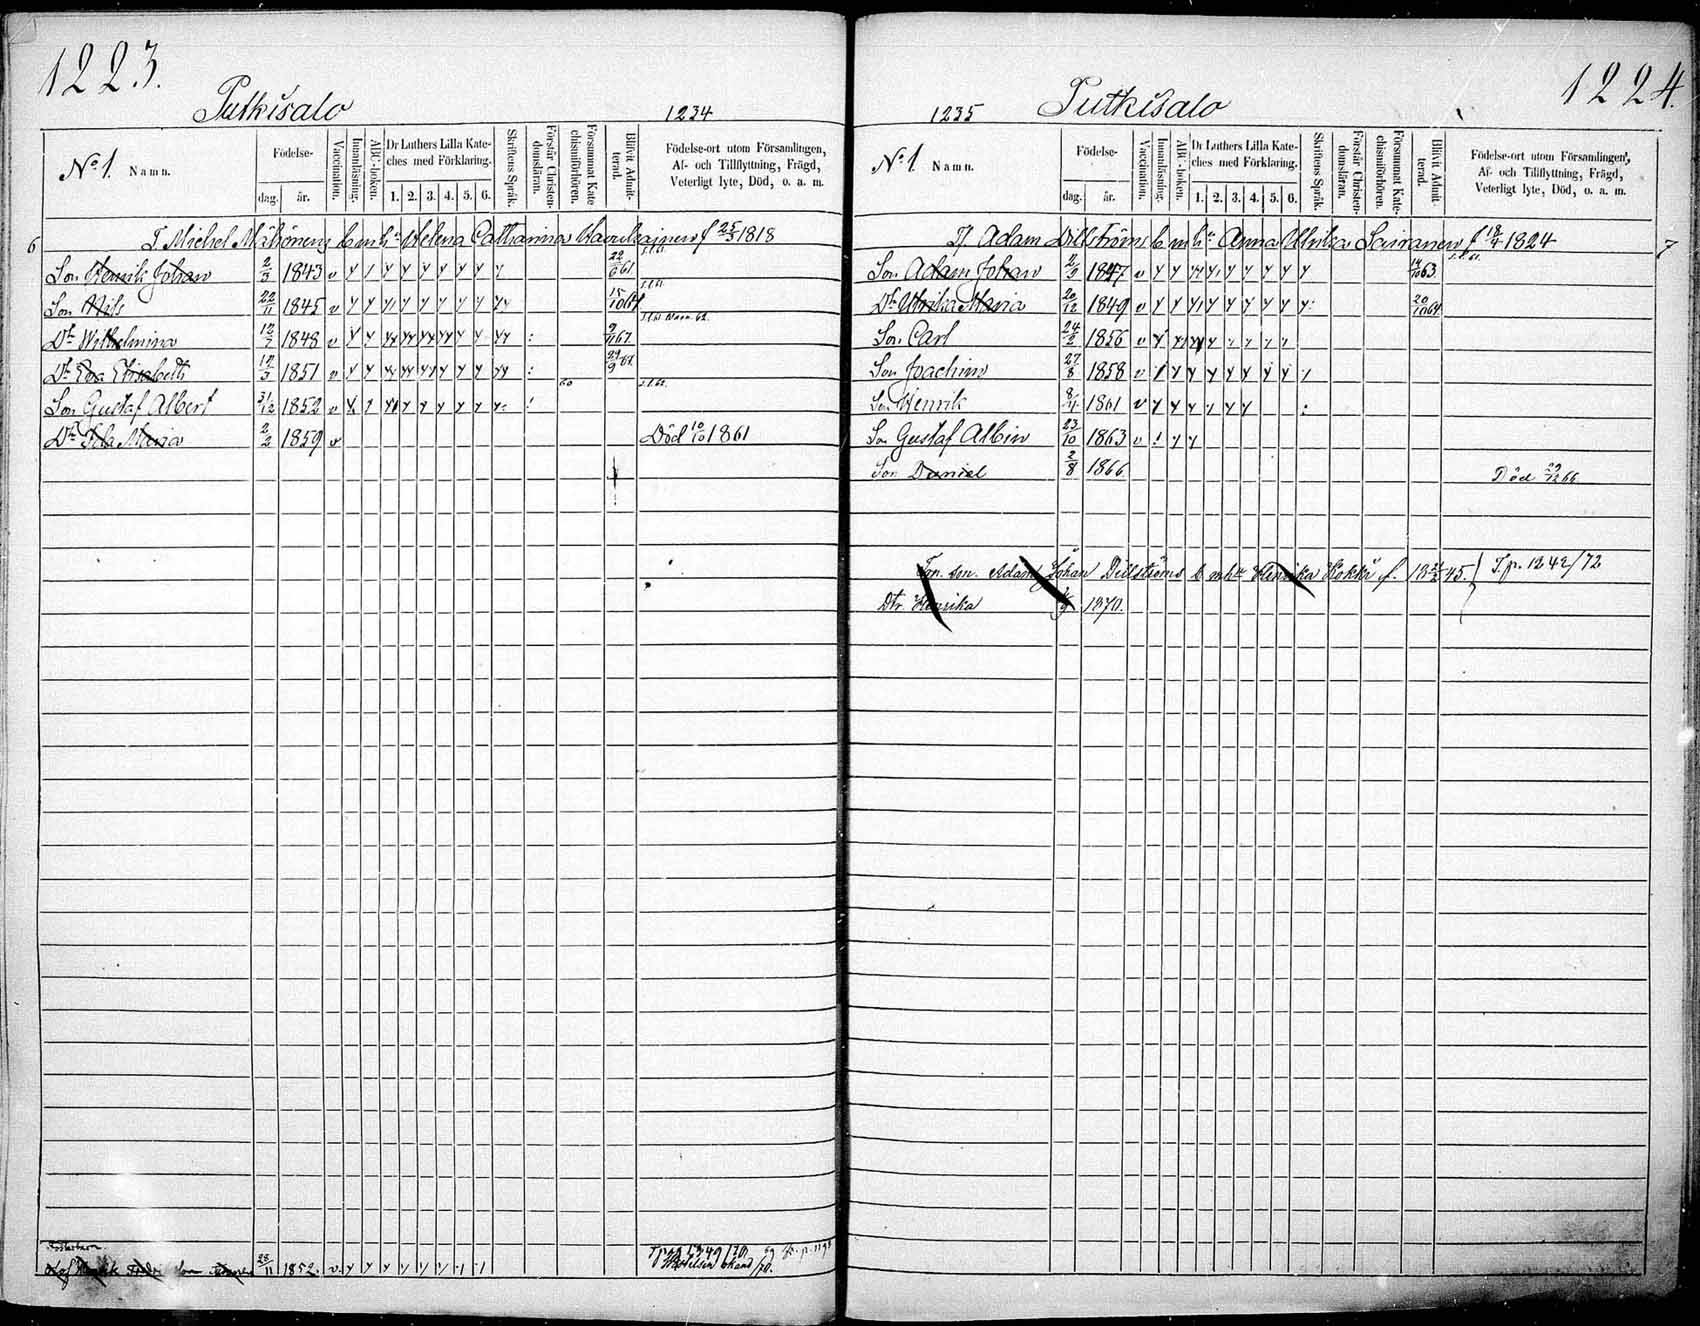 1223.
Putkisalo
1234
No 1. Namn.
Födelse-
dag. år.
Vaccination.
Innanläsning.
ABC-boken.
Dr Luthers Lilla Kateches med Förklaring.
1. 2. 3. 4. 5. 6.
Skriftens Språk.
Förstår Christendomsläran.
Försummat Katechismiförhören.
Blifvit Admitterad.
Födelse-ort utom Församlingen,
Af- och Tillflyttning, Frägd,
Veterligt lyte, Död, o. a. m.
6 T. Michel Mähönens E. m. h. Helena Catharina f 25/3 1818
Son Henrik Johan 2/3 1843 v 22/6 61
Son Nils 22/11 1845 v 15/10 64
Dr Wilhelmina 12/7 1848 v 9/11 67
Dr Eva Elisabeth 12/3 1851 v
Son Gustaf Albert 31/12 1852 v
Dr Ida Maria 2/2 1859 v Död 10/10 1861
Fosterbarn
28/11 1852. v.
1224.
1235 Putkisalo
No 1. Namn.
Födelse-
dag. år.
Vaccination.
Innanläsning.
ABC-boken.
Dr Luthers Lilla Kateches med Förklaring.
1. 2. 3. 4. 5. 6.
Skriftens Språk.
Förstår Christendomsläran.
Försummat Katechismiförhören.
Blifvit Admitterad.
Födelse-ort utom Församlingen,
Af- och Tillflyttning, Frägd,
Veterligt lyte, Död, o. a. m.
Adam Dillströms E. m. h. Anna Ulrika Sairanen f 18/4 1824 7
Son Adam Johan 2/9 1847 v 14/10 63
Dr Ulrika Maria 20/12 1849 v 20/10 64
Son Carl 24/2 1856 v
Son Joachim 27/8 1858 v
Son Henrik 8/4 1861 v
Son Gustaf Albin 23/10 1863 v
Son Daniel 2/8 1866 Död 29/12 66
son Adam Johan Dillströms E. m. h. Henrika Kokki f. 45. T.p. 1242/72
Dtr. Henrika 1870.